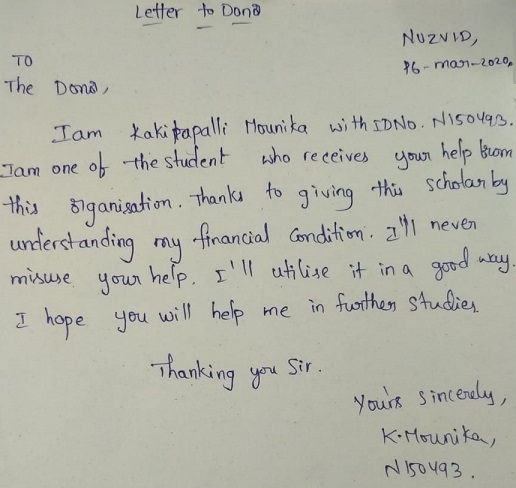 Letter to Donor
NUZVID,
16-mar-2020,
TO
The Donor,
Iam Kakikapalli Mounika with IDNo. N150493.
Iam one of the student who receives your help from
this organisation. Thanks to giving this scholar by
understanding my financial Condition. I'll never
misuse your help. I'll utilise it in a good way.
I hope you will help me in further studies.
Thanking you Sir.
Your's Sincerely,
K.Mounika,
N150493.